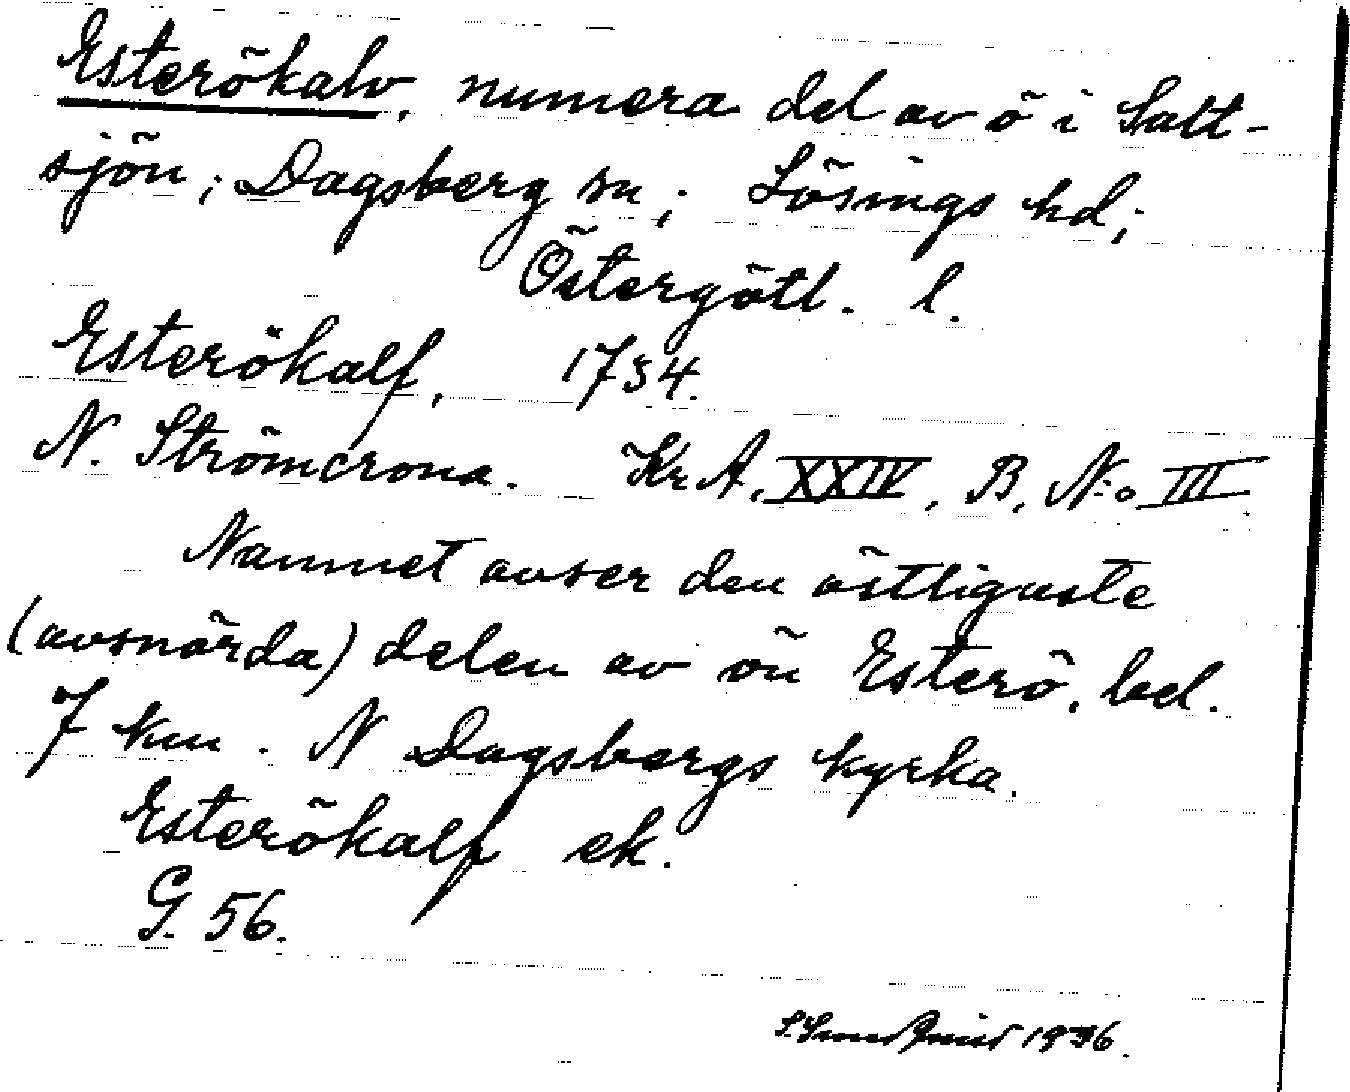 Esterökalv, numera del av ö i Salt-
sjön; Dagsberg sn; Lösings hd;
Östergötl. l.
Esterökalf, 1734.
N. Strömcrona. Kr A. XXIV, B, N:o III
Namnet avser den östligaste
(avsnörda) delen av ön Esterö, bel.
7 km. N Dagsbergs kyrka.
Esterökalf ek.
G. 56.
1936.